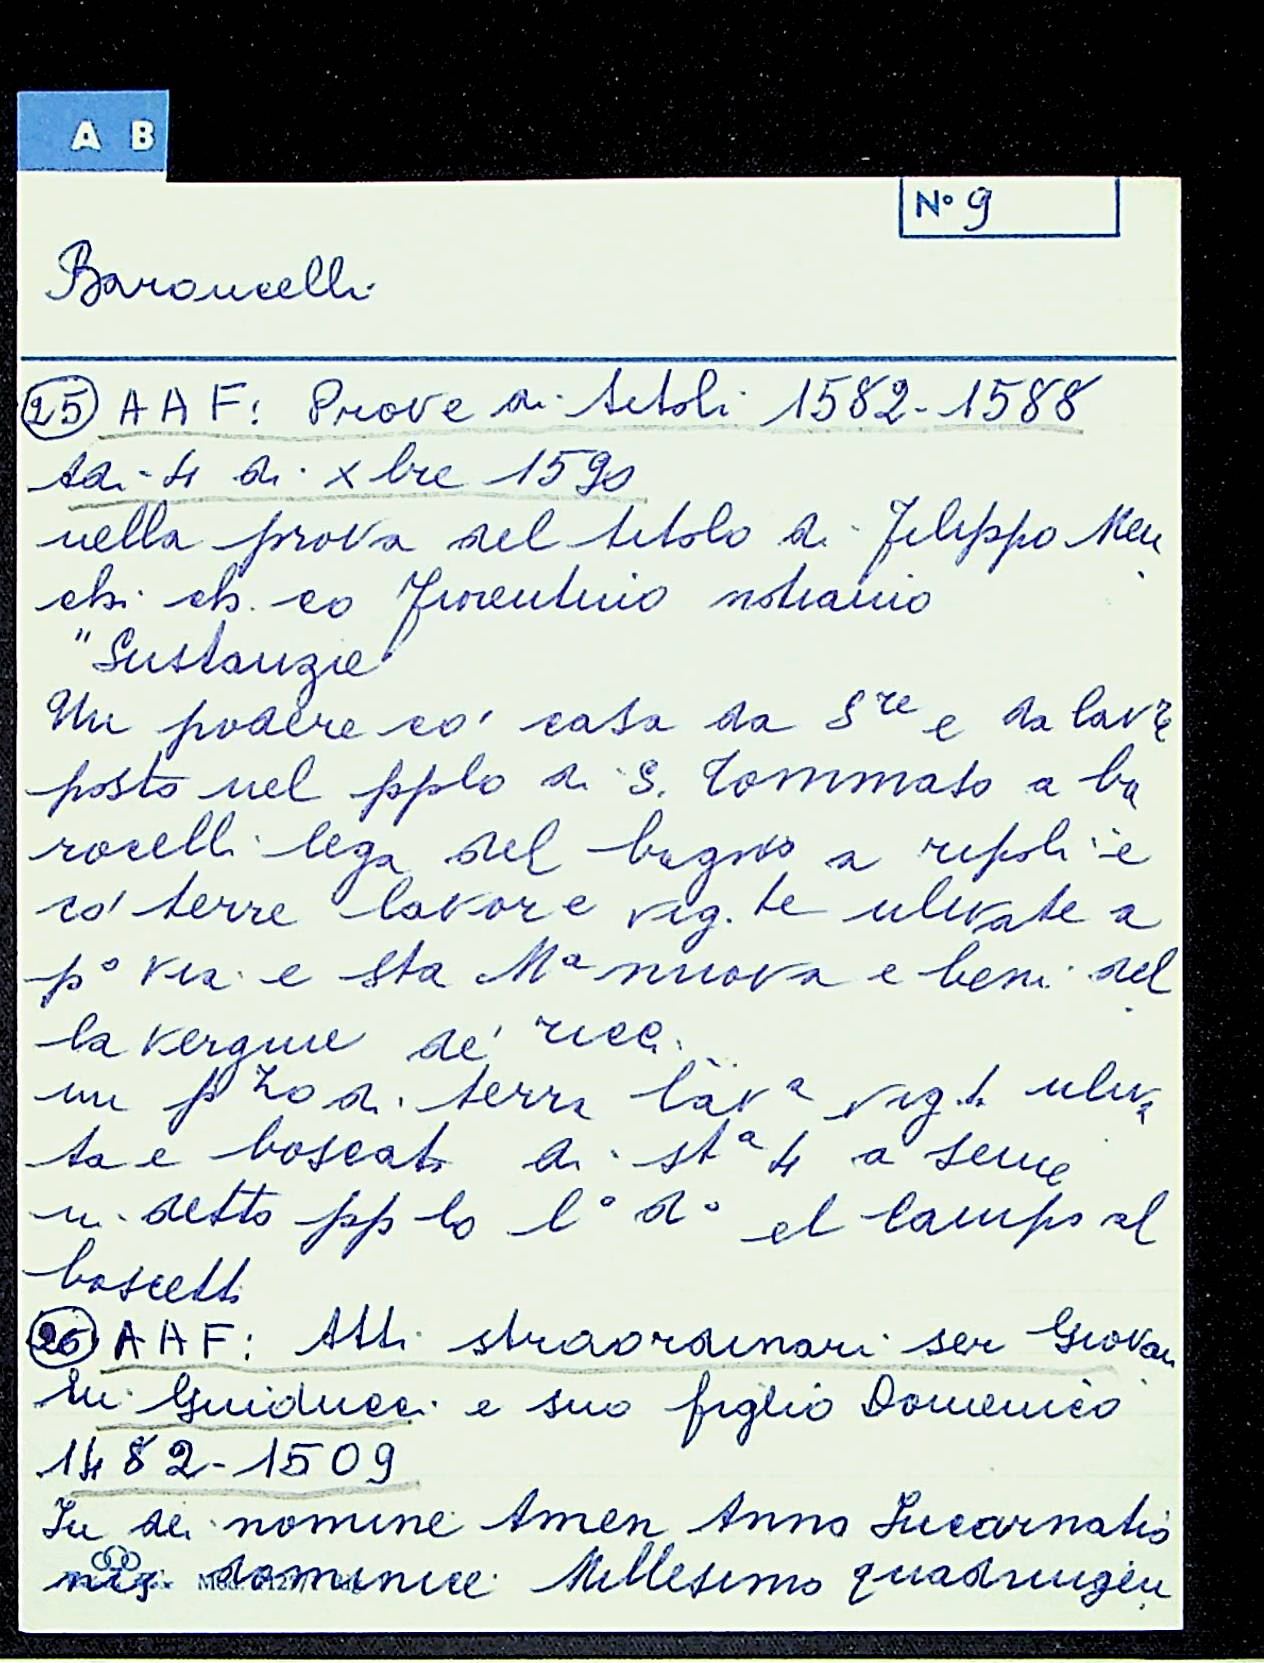 A B
N° 9
Baroncelli
25 AAF: Prove di titoli 1582-1588
Adi 4 di xbre 1590
nella prova del titolo di Filippo Men
chi ch.co Fiorentino notiamo
"Sustanzie
Un podere co' casa da Sre e da lavre
posto nel pplo di S. Tommaso a ba
rocelli lega del bagno a ripoli e
co' terre lavor e vig.te ulivate a
p° via e sta Ma nuova e beni del
la vergine de' ricci.
un pzo di terra lava vig.t. uliva
ta e boscata di sta 4 a seme
in detto pplo l° d° el campo al
boscetto
26 AAF: Atti straordinari ser Giovan
ni Guiducci e suo figlio Domenico
1482-1509
In dei nomine Amen Anno Incarnatio
nis dominice Millesimo quadringen